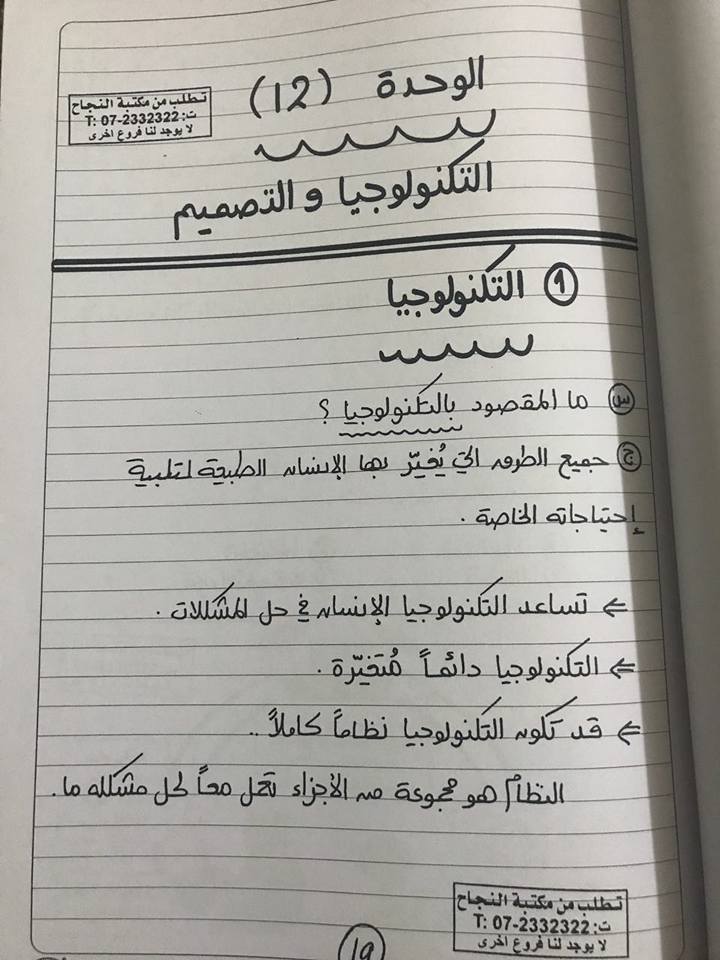 تطلب من مكتبة النجاح
ت: T: 07-2332322
لا يوجد لنا فروع اخرى
الوحدة (12)
التكنولوجيا و التصميم
① التكنولوجيا
س ما المقصود بالتكنولوجيا ؟
ج جميع الطرق التي يُغيّر بها الإنسان الطبيعة لتلبية
إحتياجاته الخاصة .
⇐ تساعد التكنولوجيا الإنسان في حل المشكلات .
⇐ التكنولوجيا دائماً مُتغيّرة .
⇐ قد تكون التكنولوجيا نظاماً كاملاً ..
النظام هو مجموعة من الأجزاء تعمل معاً لحل مشكله ما .
تطلب من مكتبة النجاح
ت: T: 07-2332322
لا يوجد لنا فروع اخرى
19